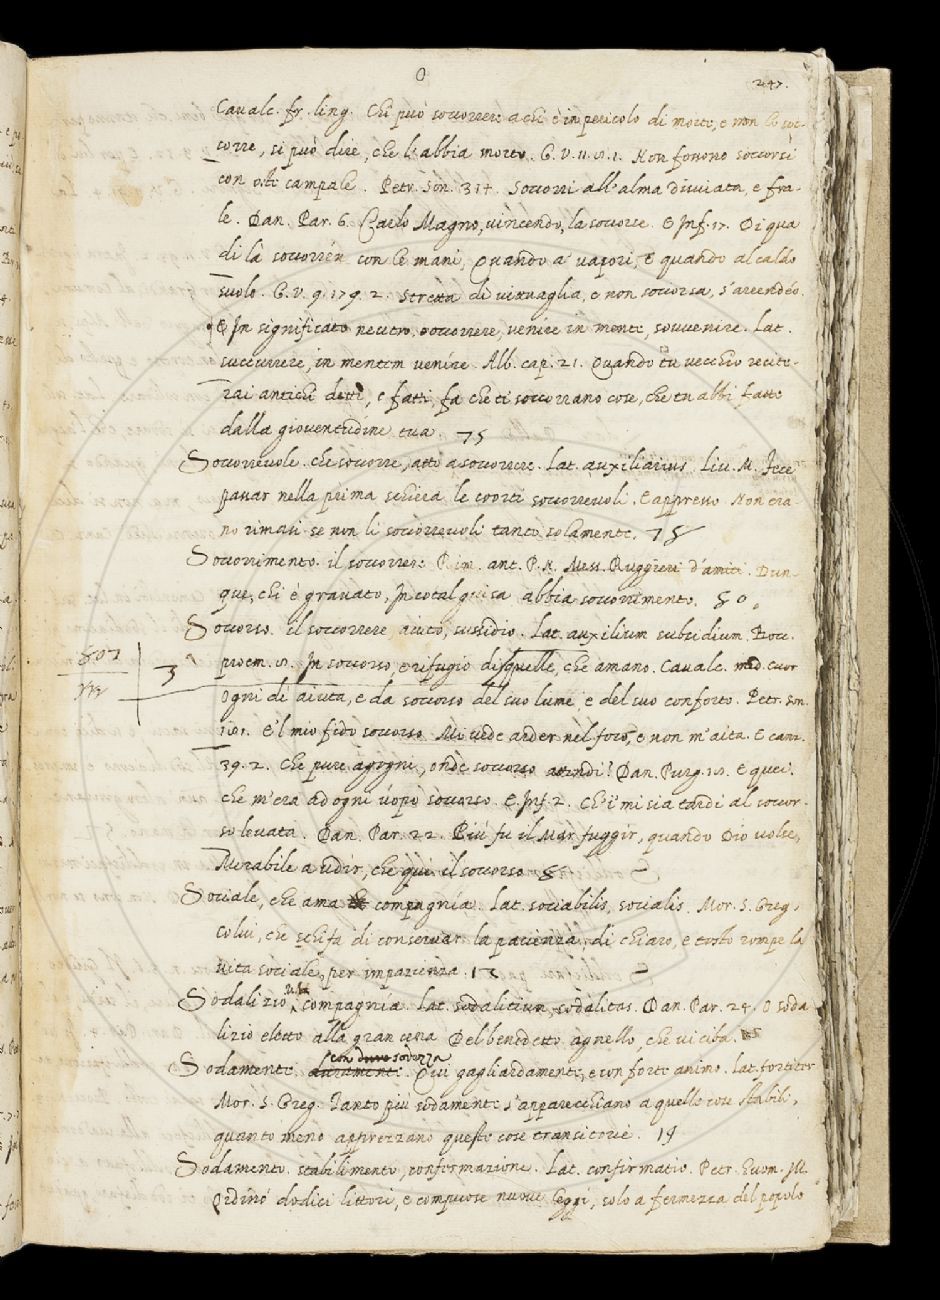 O
247.
Cavalc. fr. ling. Chi può soccorrere a chi è in pericolo di morte, e non lo soc-
corre, si può dire, che l'abbia morto. G. V. 11. Non forono soccorsi
con oste campale. Petr. Son. 314. Soccorri all'alma disviata, e fra-
le. Dan. Par. 6. Carlo Magno, vincendo, la soccorse. E Inf. 17. Di qua
di là soccorrén con le mani, Quando a' vapori, E quando al caldo
suolo. G. V. 9. 179. 2. Stretta di vittuaglia, e non soccorsa, s'arrendéo.
E In significato neutro. soccorrere, venire in mente, sovvenire. Lat.
succurrere, in mentem venire. Alb. cap. 21. Quando tu vecchio recite-
rai antichi detti, e fatti, fa che ti soccorrano cose, che tu abbi fatto
dalla gioventudine tua. 75
Soccorrevole. che soccorre, atto a soccorrere. Lat. auxiliarius. Liv. M. Fece
passar nella prima schiera le coorti soccorrevoli. E appresso. Non era-
no rimasi se non li soccorrevoli tanto solamente. 78
Soccorrimento. il soccorrere. Rim. ant. P. N. Mess. Ruggieri d'amici. Dun-
que, chi è gravato, In cotal guisa abbia soccorrimento. 80.
Soccorso. il soccorrere, aiuto, sussidio. Lat. auxilium subsidium. Bocc.
proem. In soccorso, e rifugio di quelle, che amano. Cavalc. med. cuor
3
Ogni dì aiuta, e dà soccorso del suo lume, e del suo conforto. Petr. Son.
E 'l mio fido soccorso Mi vede arder nel foco, e non m'aita. E canz.
39. 2. Che pure agogni, onde soccorso attendi? Dan. Purg. 18. E quei,
che m'era ad ogni uopo soccorso. E Inf. 2. Ch'i' mi sia tardi al soccor-
so levata. Dan. Par. 22. Più fu il Mar fuggir, quando Dio volse,
Mirabile a udir, che qui il soccorso. 8
Sociale, che ama compagnia. Lat. sociabilis, socialis. Mor. S. Greg.
Colui, che schifa di conservar la pacienza, di chiaro, e tosto rompe la
vita sociale, per impacienza. 12
Sodalizio compagnia. Lat. sodalitium, sodalitas. Dan. Par. 24. O soda
lizio eletto alla gran cena Del benedetto agnello, che vi ciba.
con sodezza
Sodamente. duramente. Qui gagliardamente, e con forte animo. Lat. fortiter
Mor. S. Greg. Tanto più sodamente s'apparecchiano a quelle cose stabili,
quanto meno apprezzano queste cose transitorie. 14
Sodamento. stabilimento, confermazione. Lat. confirmatio. Petr. huom. ill.
Ordinò dodici littori, e compuose nuove leggi, solo a fermezza del popolo